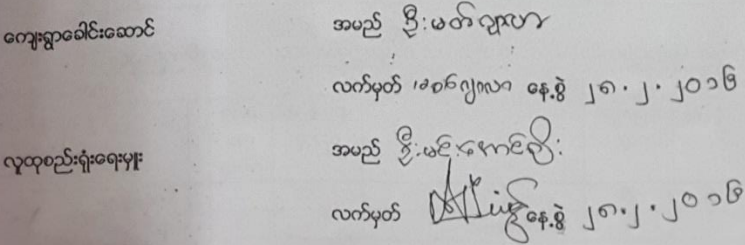 ကျေးရွာခေါင်းဆောင် အမည် ဦးမတ်ဂျာလာ
လက်မှတ် နေ့စွဲ ၂၈.၂.၂၀၁၆
လူထုစည်းရုံးရေးမှူး အမည် ဦးမင်းအောင်စိုး
လက်မှတ် နေ့စွဲ ၂၈.၂.၂၀၁၆